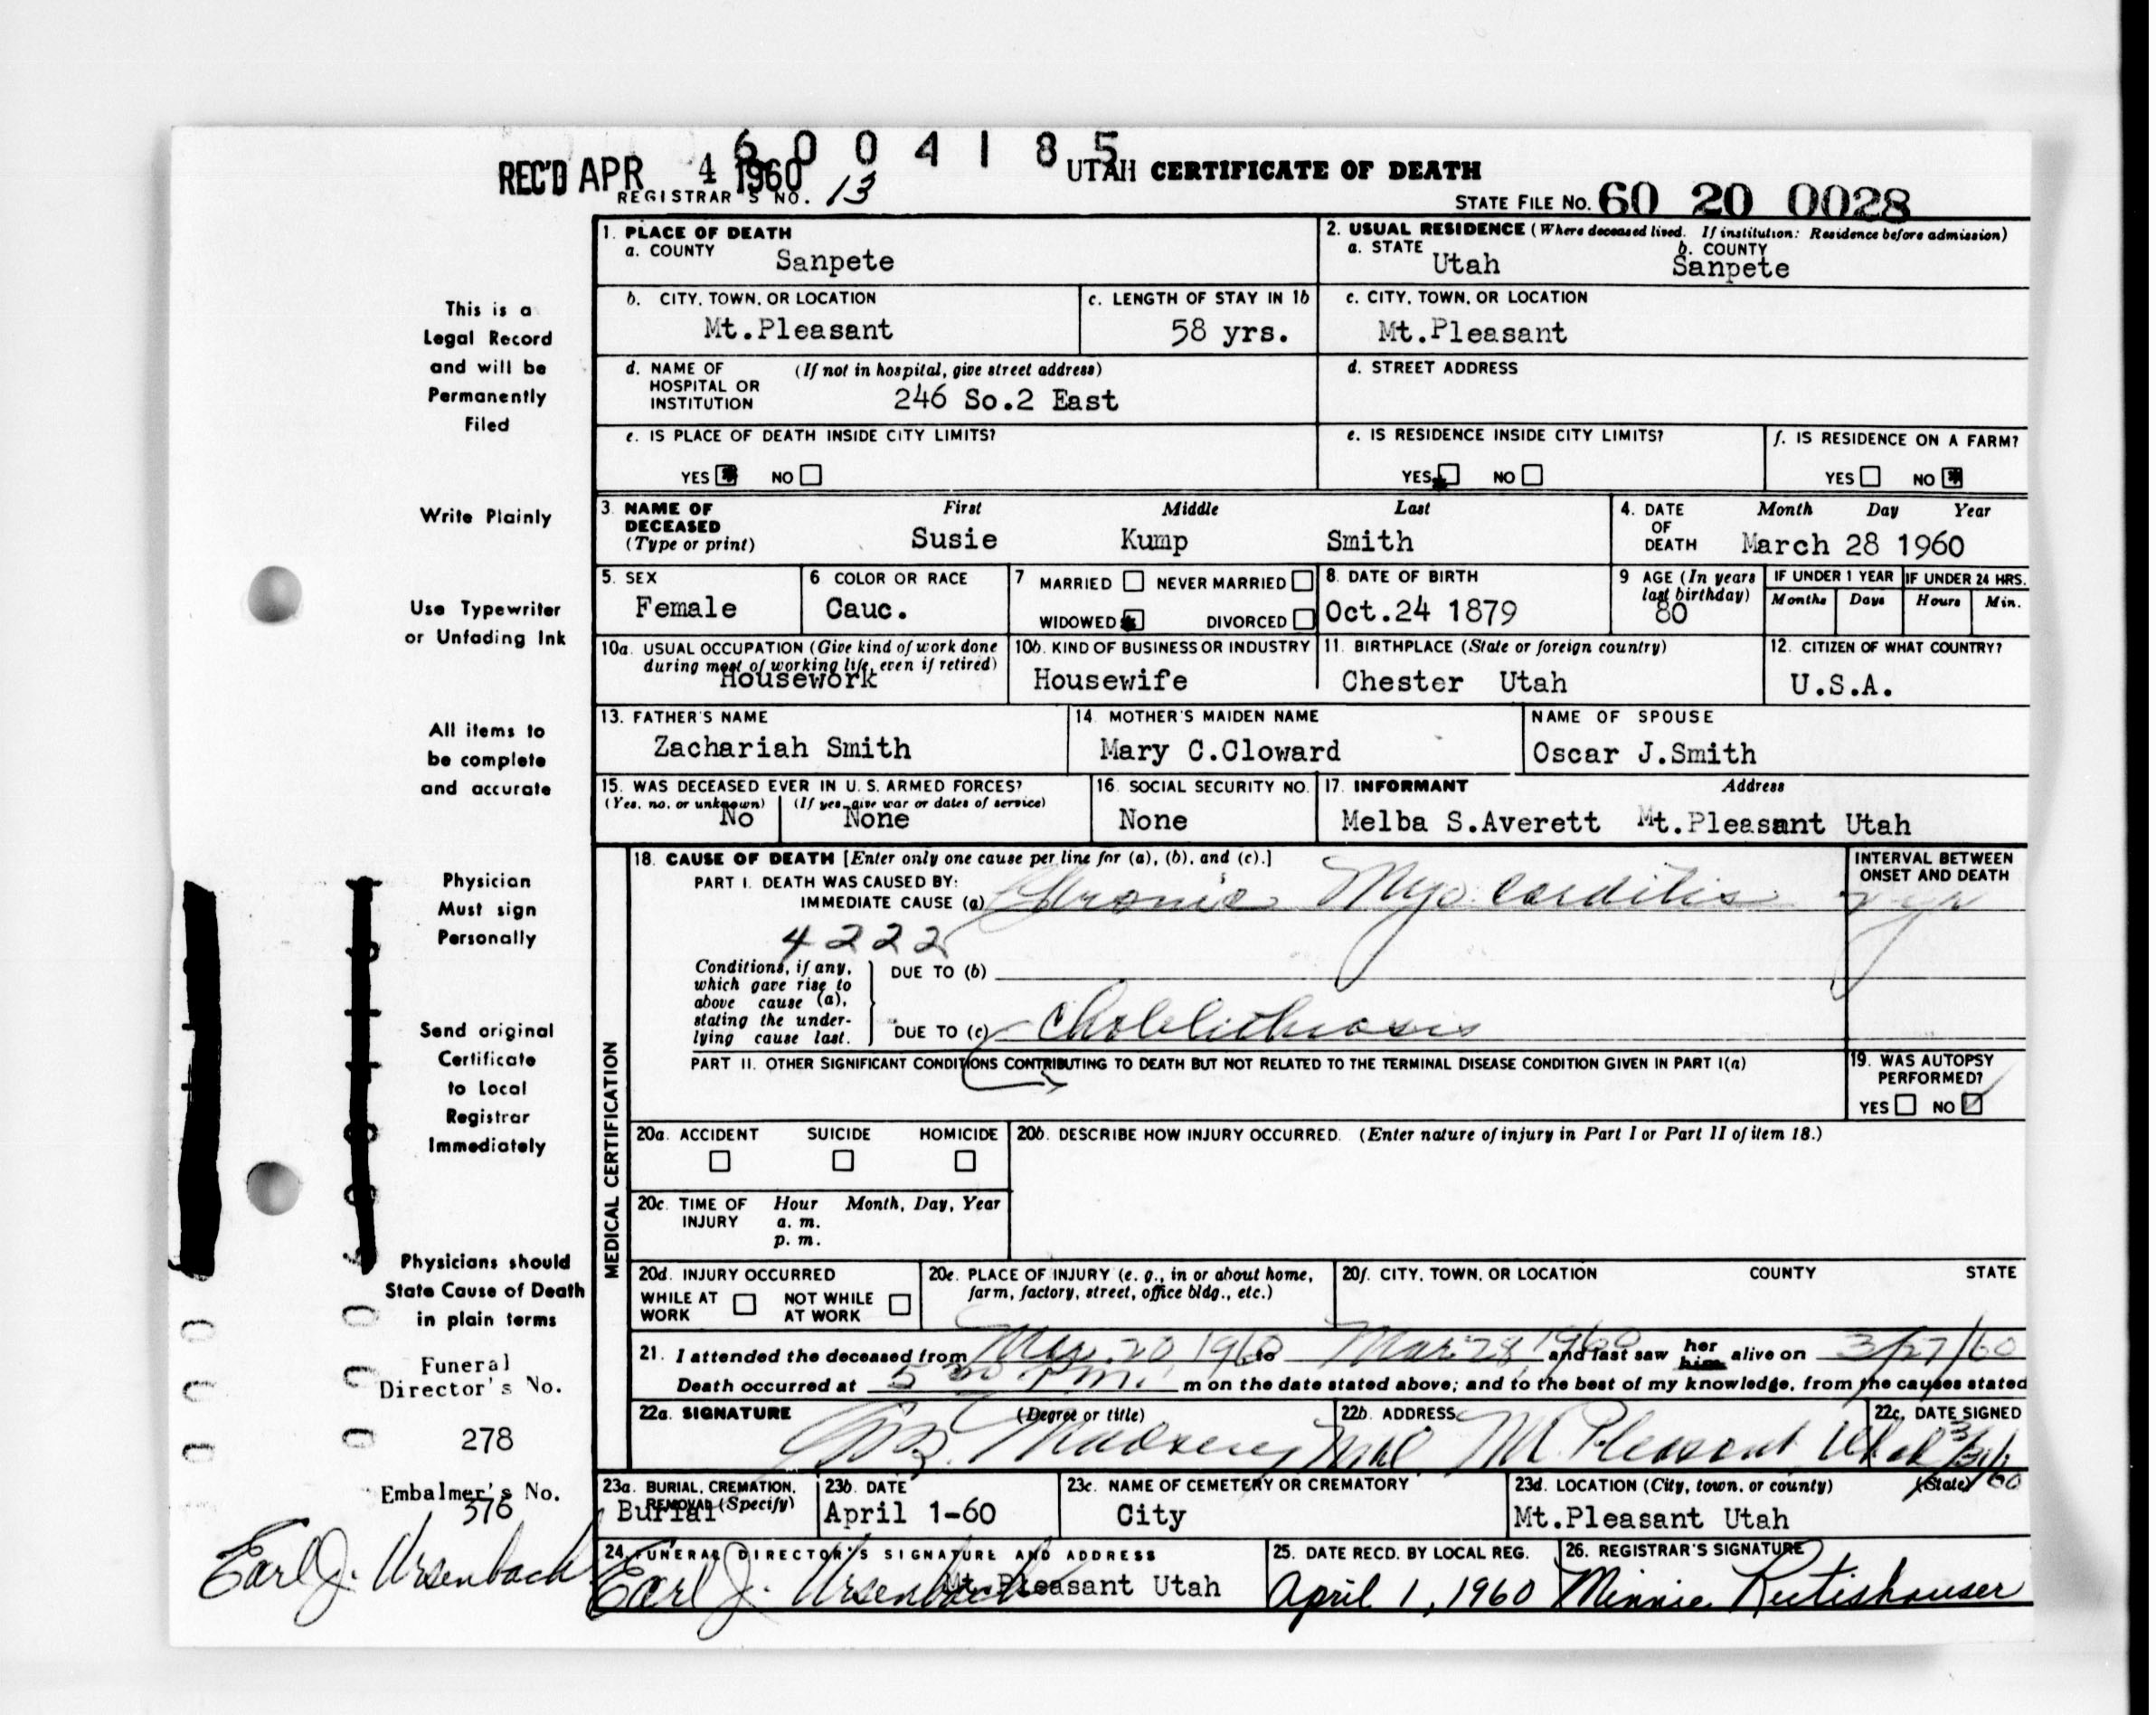 6004185
REC'D APR 4 1960
REGISTRAR'S NO. 13
UTAH CERTIFICATE OF DEATH
STATE FILE NO. 60 20 0028
This is a
Legal Record
and will be
Permanently
Filed
Write Plainly
Use Typewriter
or Unfading Ink
All items to
be complete
and accurate
Physician
Must sign
Personally
Send original
Certificate
to Local
Registrar
Immediately
Physicians should
State Cause of Death
in plain terms
Funeral
Director's No.
278
Embalmer's No.
376
Earl J. Ursenbach
1. PLACE OF DEATH
a. COUNTY Sanpete
2. USUAL RESIDENCE (Where deceased lived. If institution: Residence before admission)
a. STATE Utah b. COUNTY Sanpete
b. CITY, TOWN, OR LOCATION Mt.Pleasant
c. LENGTH OF STAY IN 1b 58 yrs.
c. CITY, TOWN, OR LOCATION Mt.Pleasant
d. NAME OF HOSPITAL OR INSTITUTION (If not in hospital, give street address) 246 So.2 East
d. STREET ADDRESS
e. IS PLACE OF DEATH INSIDE CITY LIMITS?
YES NO
e. IS RESIDENCE INSIDE CITY LIMITS?
YES NO
f. IS RESIDENCE ON A FARM?
YES NO
3. NAME OF DECEASED (Type or print) First Middle Last
Susie Kump Smith
4. DATE OF DEATH Month Day Year
March 28 1960
5. SEX Female
6 COLOR OR RACE Cauc.
7 MARRIED NEVER MARRIED
WIDOWED DIVORCED
8. DATE OF BIRTH Oct.24 1879
9 AGE (In years last birthday) 80
IF UNDER 1 YEAR Months Days
IF UNDER 24 HRS. Hours Min.
10a. USUAL OCCUPATION (Give kind of work done during most of working life, even if retired) Housework
10b. KIND OF BUSINESS OR INDUSTRY Housewife
11. BIRTHPLACE (State or foreign country) Chester Utah
12. CITIZEN OF WHAT COUNTRY? U.S.A.
13. FATHER'S NAME Zachariah Smith
14. MOTHER'S MAIDEN NAME Mary C.Cloward
NAME OF SPOUSE Oscar J.Smith
15. WAS DECEASED EVER IN U. S. ARMED FORCES?
(Yes, no, or unknown) No (If yes, give war or dates of service) None
16. SOCIAL SECURITY NO. None
17. INFORMANT Address
Melba S.Averett Mt.Pleasant Utah
MEDICAL CERTIFICATION
18. CAUSE OF DEATH [Enter only one cause per line for (a), (b), and (c).]
INTERVAL BETWEEN ONSET AND DEATH
PART I. DEATH WAS CAUSED BY:
IMMEDIATE CAUSE (a) Chronic Myocarditis
4222
Conditions, if any, which gave rise to above cause (a), stating the underlying cause last.
DUE TO (b)
DUE TO (c) Cholelithiasis
PART II. OTHER SIGNIFICANT CONDITIONS CONTRIBUTING TO DEATH BUT NOT RELATED TO THE TERMINAL DISEASE CONDITION GIVEN IN PART I(a)
19. WAS AUTOPSY PERFORMED?
YES NO
20a. ACCIDENT SUICIDE HOMICIDE
20b. DESCRIBE HOW INJURY OCCURRED. (Enter nature of injury in Part I or Part II of item 18.)
20c. TIME OF INJURY Hour Month, Day, Year
a. m.
p. m.
20d. INJURY OCCURRED
WHILE AT WORK NOT WHILE AT WORK
20e. PLACE OF INJURY (e. g., in or about home, farm, factory, street, office bldg., etc.)
20f. CITY, TOWN, OR LOCATION COUNTY STATE
21. I attended the deceased from Mar. 20 1960 to Mar. 28 1960 and last saw her him alive on 3/27/60
Death occurred at 5 30 P.M. m on the date stated above; and to the best of my knowledge, from the causes stated
22a. SIGNATURE (Degree or title)
Madsen
22b. ADDRESS
Mt Pleasant Utah
22c. DATE SIGNED
23a. BURIAL, CREMATION, REMOVAL (Specify) Burial
23b. DATE April 1-60
23c. NAME OF CEMETERY OR CREMATORY City
23d. LOCATION (City, town, or county) (State)
Mt.Pleasant Utah
24. FUNERAL DIRECTOR'S SIGNATURE AND ADDRESS
Earl J. Ursenbach Mt.Pleasant Utah
25. DATE RECD. BY LOCAL REG.
April 1, 1960
26. REGISTRAR'S SIGNATURE
Minnie Rutishauser